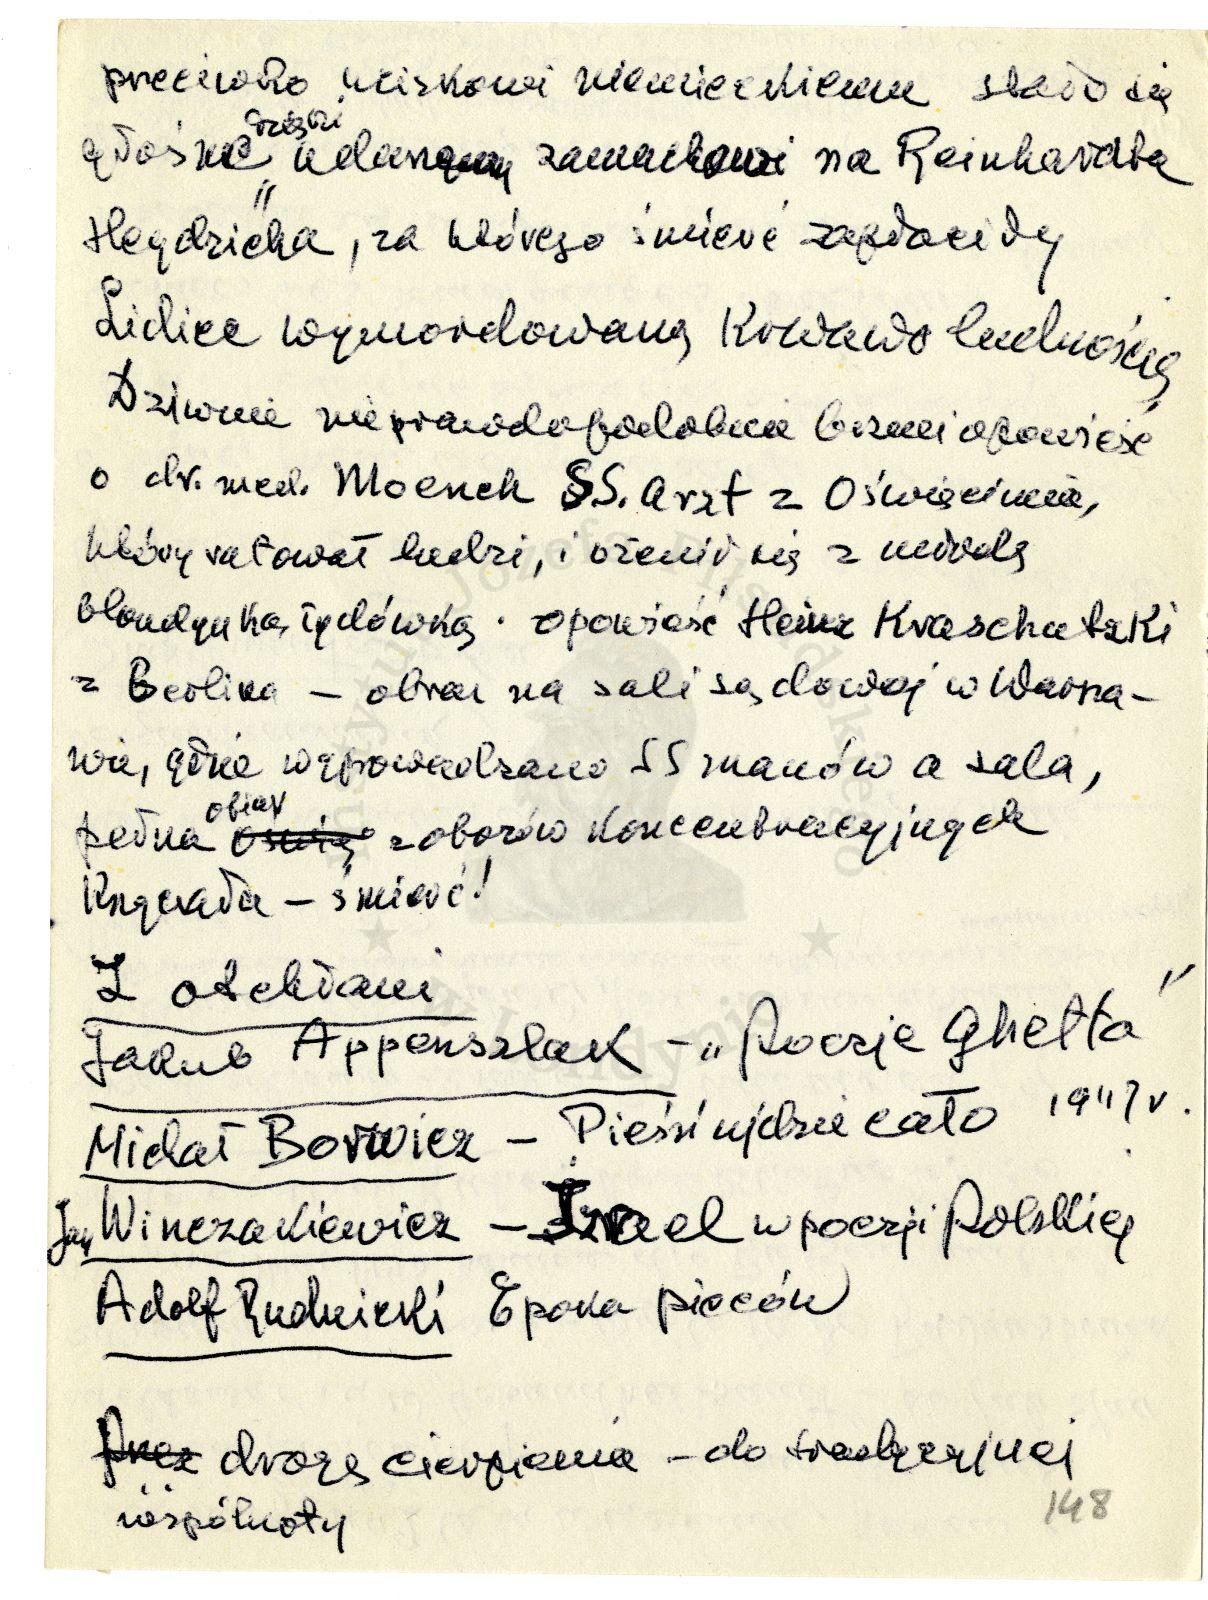 przeciwko uciskowi niemieckiemu stało się
głośne dzięki udanemu zamachowi na Reinhardta
Heydricha, za którego śmierć zapłaciły
Lidice wymordowaną krwawo ludnością
Dziwnie nieprawdopodobnie brzmi opowieść
o dr. med. Moench SS. Arzt z Oświęcimia,
który ratował ludzi, i ożenił się z młodą
blondynką żydówką. opowieść Heinz Kraschutzki
z Berlina – obraz na sali sądowej w Warsza-
wie, gdzie wyprowadzano SS manów a sala,
pełna ofiar z obozów koncentracyjnych
krzyczała – śmierć!
Z otchłani
Jakub Appenszlak – „Poezje Ghetta"
Michał Borwicz – Pieśń ujdzie cało 1947 r.
Jan Winczakiewicz – Izrael w poezji Polskiej
Adolf Rudnicki Epoka pieców
Przez drogę cierpienia – do tradycyjnej
wspólnoty
148
Instytut Józefa Piłsudskiego
w Londynie